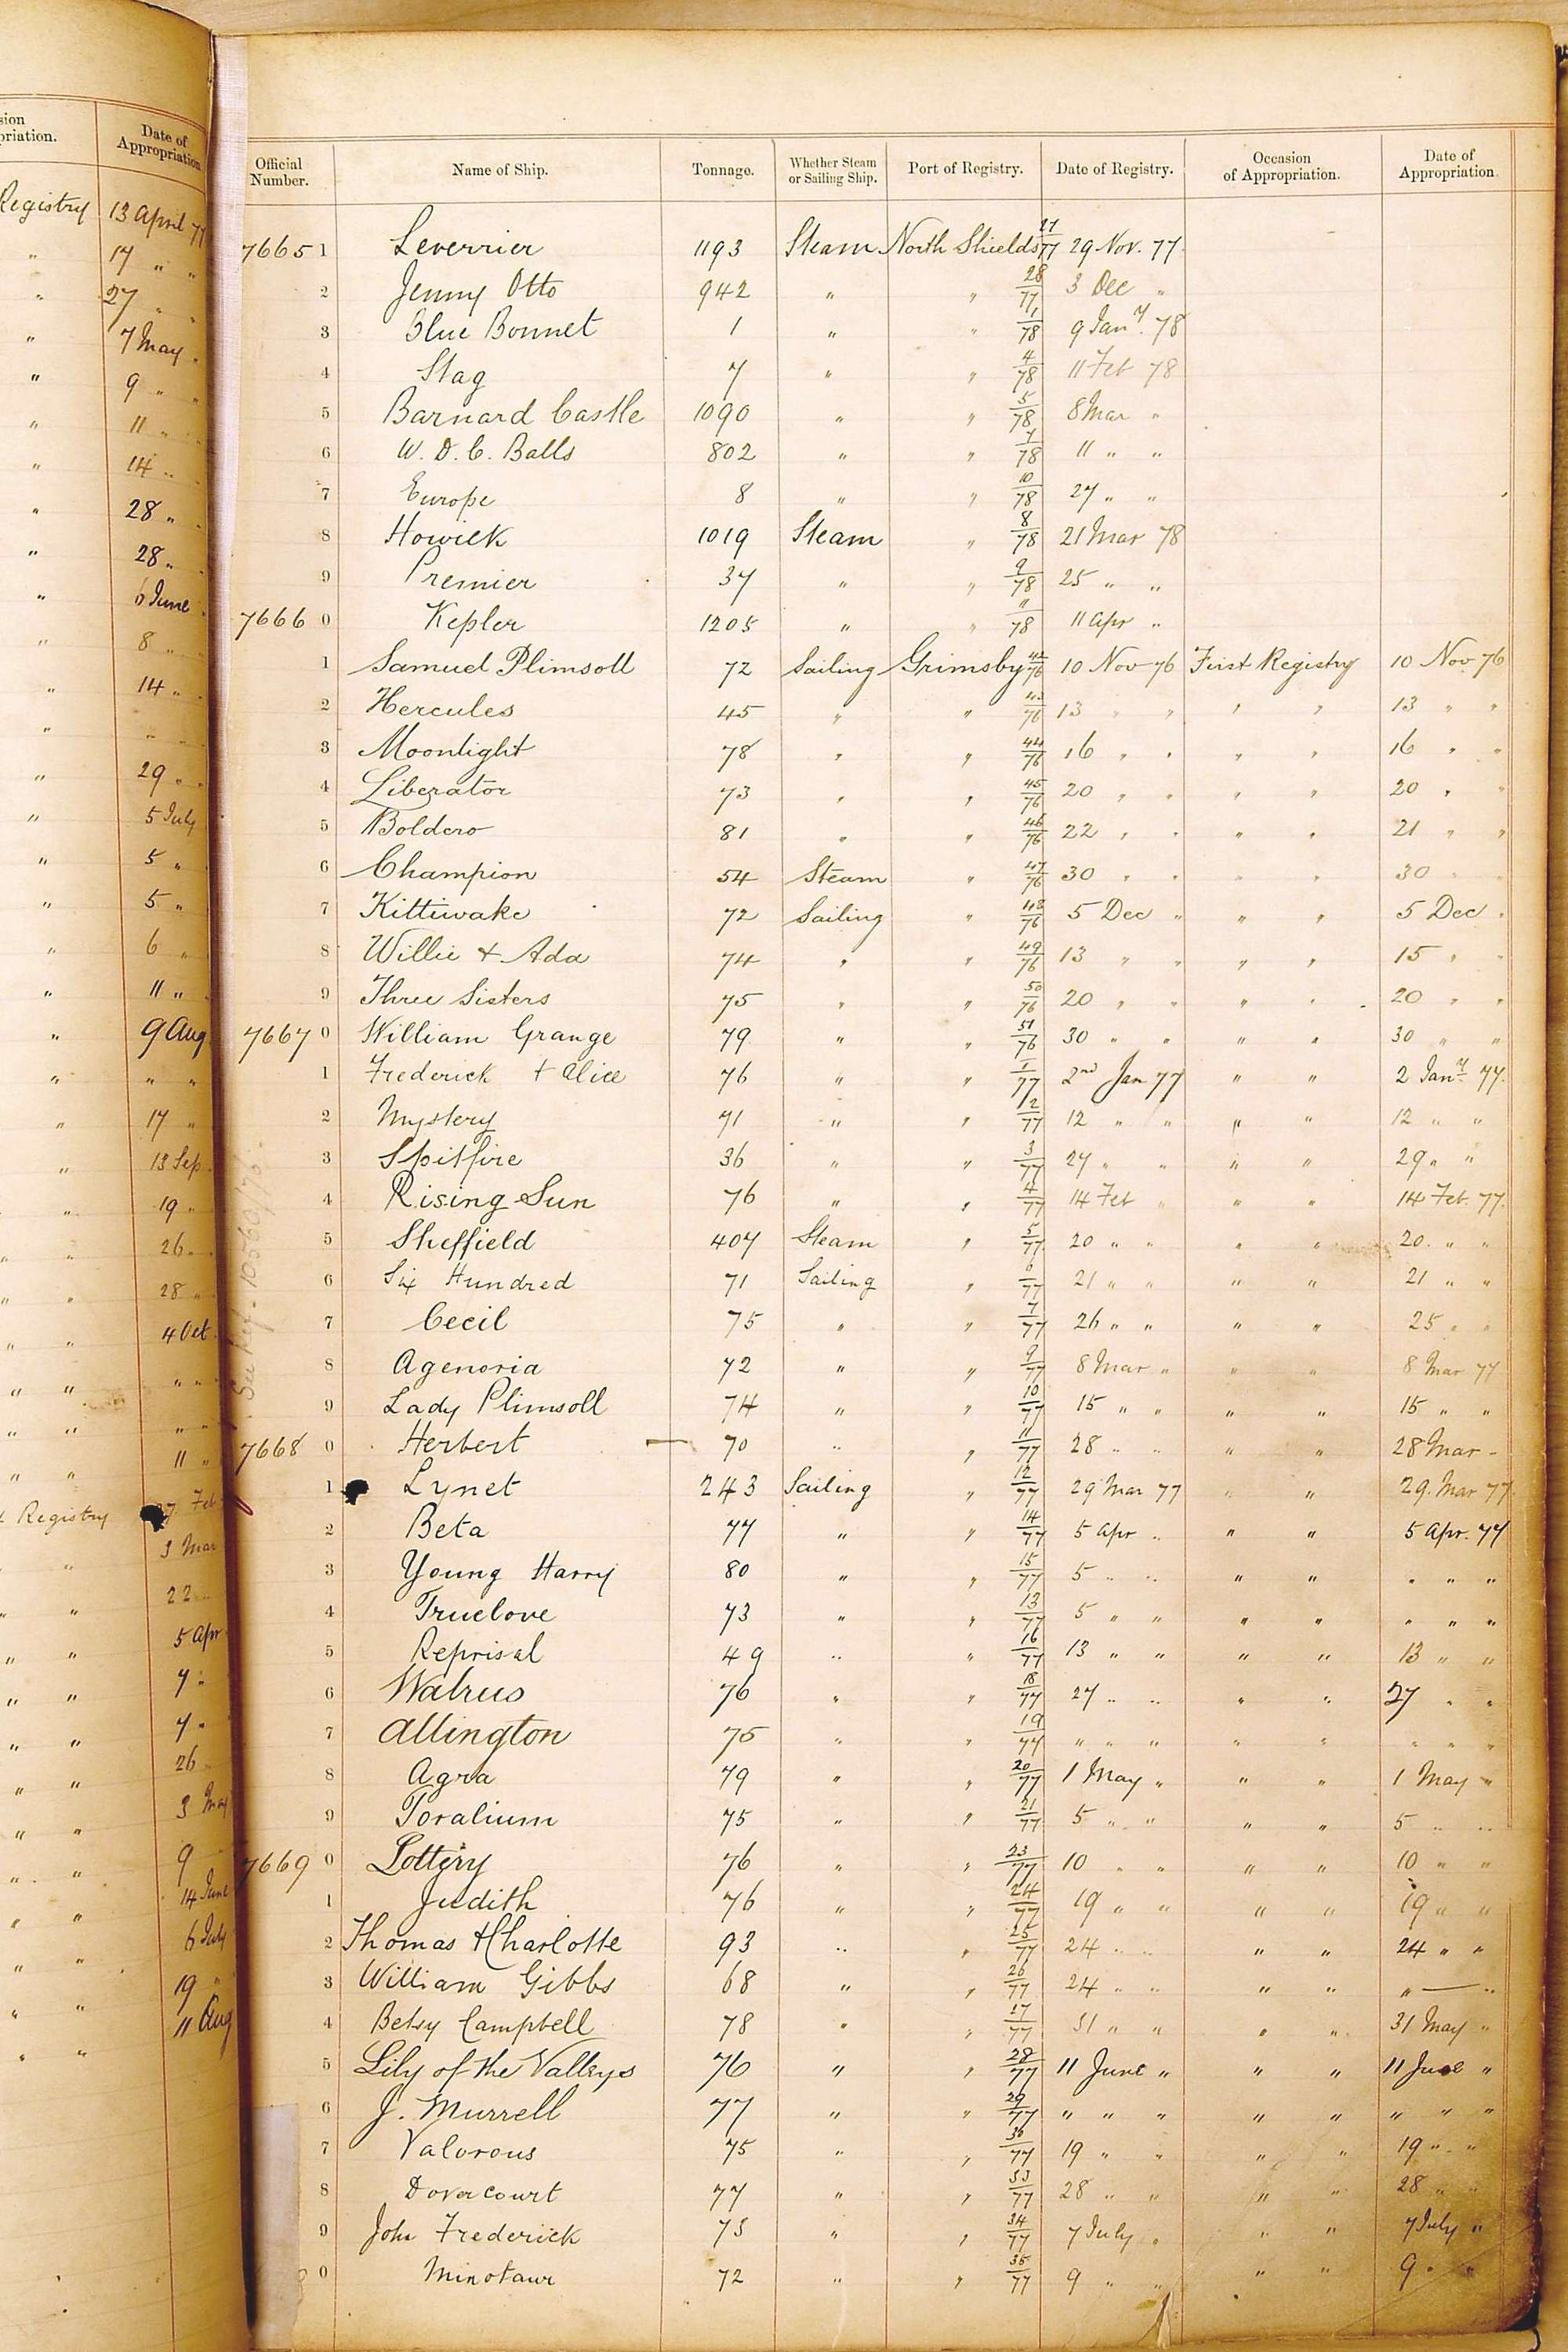 sion
priation.
Date of
Appropriation
Registry 13 April 77
" 17 " "
" 27 " "
" 7 May "
" 9 " "
" 11 " "
" 14 " "
" 28 " "
" 28 " "
" 6 June "
" 8 " "
" 14 " "
" " "
" 29 " "
" 5 July
" 5 "
" 5 "
" 6 "
" 11 "
" 9 Aug
" " "
" 17 "
" 13 Sep
" 19 "
" " 26 "
" " 28 "
" " 4 Oct
" " " "
" " " "
" " 11 "
Registry 27 Feb
" 3 Mar
" " 22 "
" " 5 Apr
" " 7 "
" " 7 "
" " 26
" " 3 May
" " 9
" " 14 June
" " 6 July
" " 19 "
" " 11 Aug
" "
Official Number. Name of Ship. Tonnage. Whether Steam or Sailing Ship. Port of Registry. Date of Registry. Occasion of Appropriation. Date of Appropriation.
7665 1 Leverrier 1193 Steam North Shields 27/77 29 Nov. 77
2 Jenny Otto 942 " " 28/77 3 Dec "
3 Blue Bonnet 1 " " 1/78 9 Jany. 78
4 Stag 7 " " 4/78 11 Feb 78
5 Barnard Castle 1090 " " 5/78 8 Mar "
6 W. D. C. Balls 802 " " 7/78 11 " "
7 Europe 8 " " 10/78 27 " "
8 Howick 1019 Steam " 8/78 21 Mar 78
9 Premier 37 " " 9/78 25 " "
7666 0 Kepler 1205 " " 11/78 11 Apr "
1 Samuel Plimsoll 72 Sailing Grimsby 42/76 10 Nov 76 First Registry 10 Nov 76
2 Hercules 45 " " 43/76 13 " " " " 13 " "
3 Moonlight 78 " " 44/76 16 " " " " 16 " "
4 Liberator 73 " " 45/76 20 " " " " 20 " "
5 Boldero 81 " " 46/76 22 " " " " 21 " "
6 Champion 54 Steam " 47/76 30 " " " " 30 " "
7 Kittiwake 72 Sailing " 48/76 5 Dec " " " 5 Dec "
8 Willie + Ada 74 " " 49/76 13 " " " " 15 " "
9 Three Sisters 75 " " 50/76 20 " " " " 20 " "
7667 0 William Grange 79 " " 51/76 30 " " " " 30 " "
1 Frederick + Alice 76 " " 1/77 2nd Jan 77 " " 2 Jany. 77.
2 Mystery 71 " " 2/77 12 " " " " 12 " "
3 Spitfire 36 " " 3/77 27 " " " " 29 " "
4 Rising Sun 76 " " 4/77 14 Feb " " " 14 Feb. 77.
5 Sheffield 407 Steam " 5/77 20 " " " " 20. " "
6 Six Hundred 71 Sailing " 6/77 21 " " " " 21 " "
7 Cecil 75 " " 7/77 26 " " " " 25 " "
8 Agenoria 72 " " 9/77 8 Mar " " " 8 Mar 77
9 Lady Plimsoll 74 " " 10/77 15 " " " " 15 " "
7668 0 Herbert — 70 " " 11/77 28 " " " " 28 Mar "
1 Lynet 243 Sailing " 12/77 29 Mar 77 " " 29. Mar 77.
2 Beta 77 " " 14/77 5 Apr " " " 5 Apr. 77
3 Young Harry 80 " " 15/77 5 " " " " " " "
4 Truelove 73 " " 13/77 5 " " " " " " "
5 Reprisal 49 " " 16/77 13 " " " " 13 " "
6 Walrus 76 " " 18/77 27 " " " " 27 " "
7 Allington 75 " " 19/77 " " " " " " " "
8 Agra 79 " " 20/77 1 May " " " 1 May "
9 Toralium 75 " " 21/77 5 " " " " 5 " "
7669 0 Lottery 76 " " 23/77 10 " " " " 10 " "
1 Judith 76 " " 24/77 19 " " " " 19 " "
2 Thomas + Charlotte 93 " " 25/77 24 " " " " 24 " "
3 William Gibbs 68 " " 26/77 24 " " " " " — "
4 Betsy Campbell 78 " " 27/77 31 " " " " 31 May "
5 Lily of the Valleys 76 " " 28/77 11 June " " " 11 June "
6 J. Murrell 77 " " 29/77 " " " " " " " "
7 Valorous 75 " " 30/77 19 " " " " 19 " "
8 Dovercourt 77 " " 33/77 28 " " " " 28 " "
9 John Frederick 73 " " 34/77 7 July " " " 7 July "
0 Minotaur 72 " " 35/77 9 " " " " 9 " "